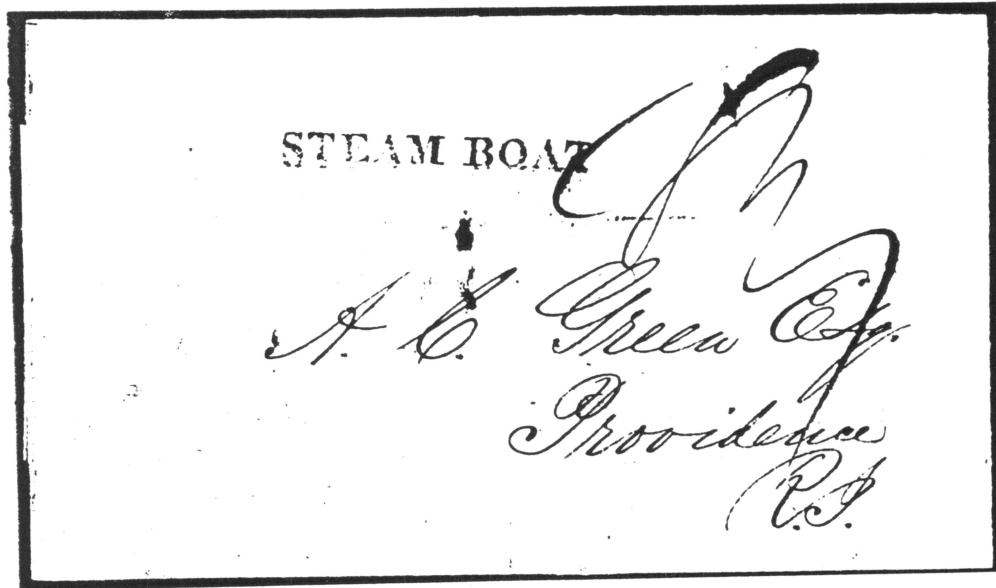 STEAM BOAT
A. C. Green Esq.
Providence
R.I.